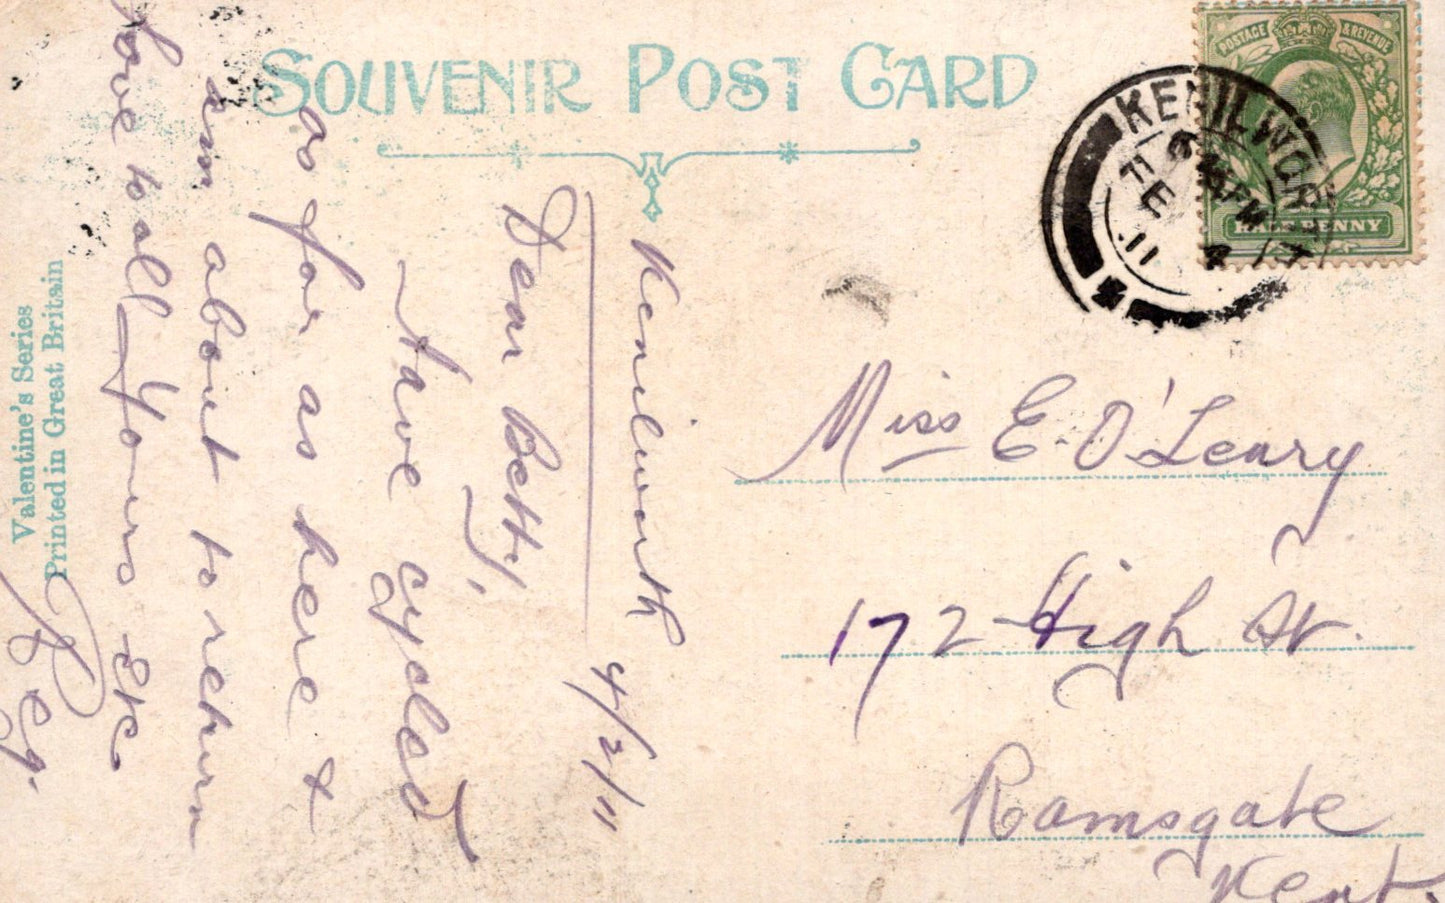 SOUVENIR POST CARD
Kenilworth 4/2/11
Dear Betty,
Have cycled
as far as here &
am about to return
Love to all Yours etc
Reg.
Miss E. O'Leary
172 High St.
Ramsgate
Kent.
POSTAGE & REVENUE
HALF PENNY
KENILWORTH
PM
FE 4
11
Valentine's Series
Printed in Great Britain